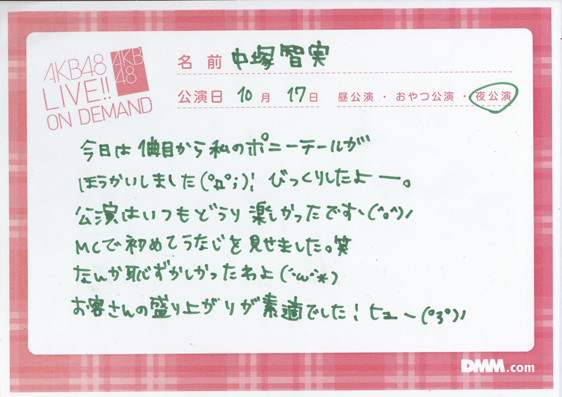 AKB48
LIVE!!
ON DEMAND
AKB
48
名前 中塚智実
公演日 10月 17日 昼公演・おやつ公演・夜公演
今日は1曲目から私のポニーテールが
ほうかいしました(°Д°;)! びっくりしたよー。
公演はいつもどうり楽しかったです、(^o^)ノ
MCで初めてうなじを見せました。笑
なんか恥ずかしかったわよ(´ω`*)
お客さんの盛り上がりが素適でした! ヒュ〜(°3°)ノ
DMM.com